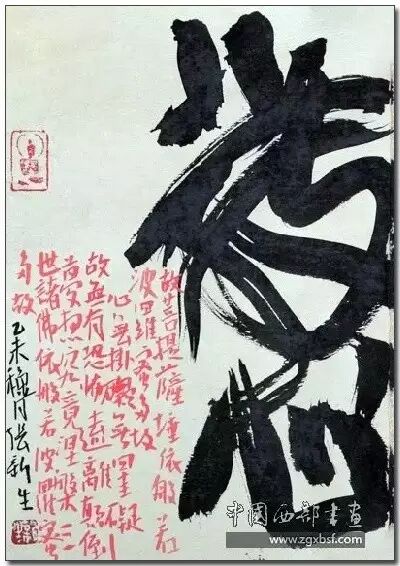 故菩提薩埵依般若
波羅蜜多故
心無掛礙無罣礙
故無有恐怖遠離顛倒
夢想究竟涅槃三
世諸佛依般若波羅蜜
多故
乙未穐月张新生
中國西部書畫
www.zgxbsf.com